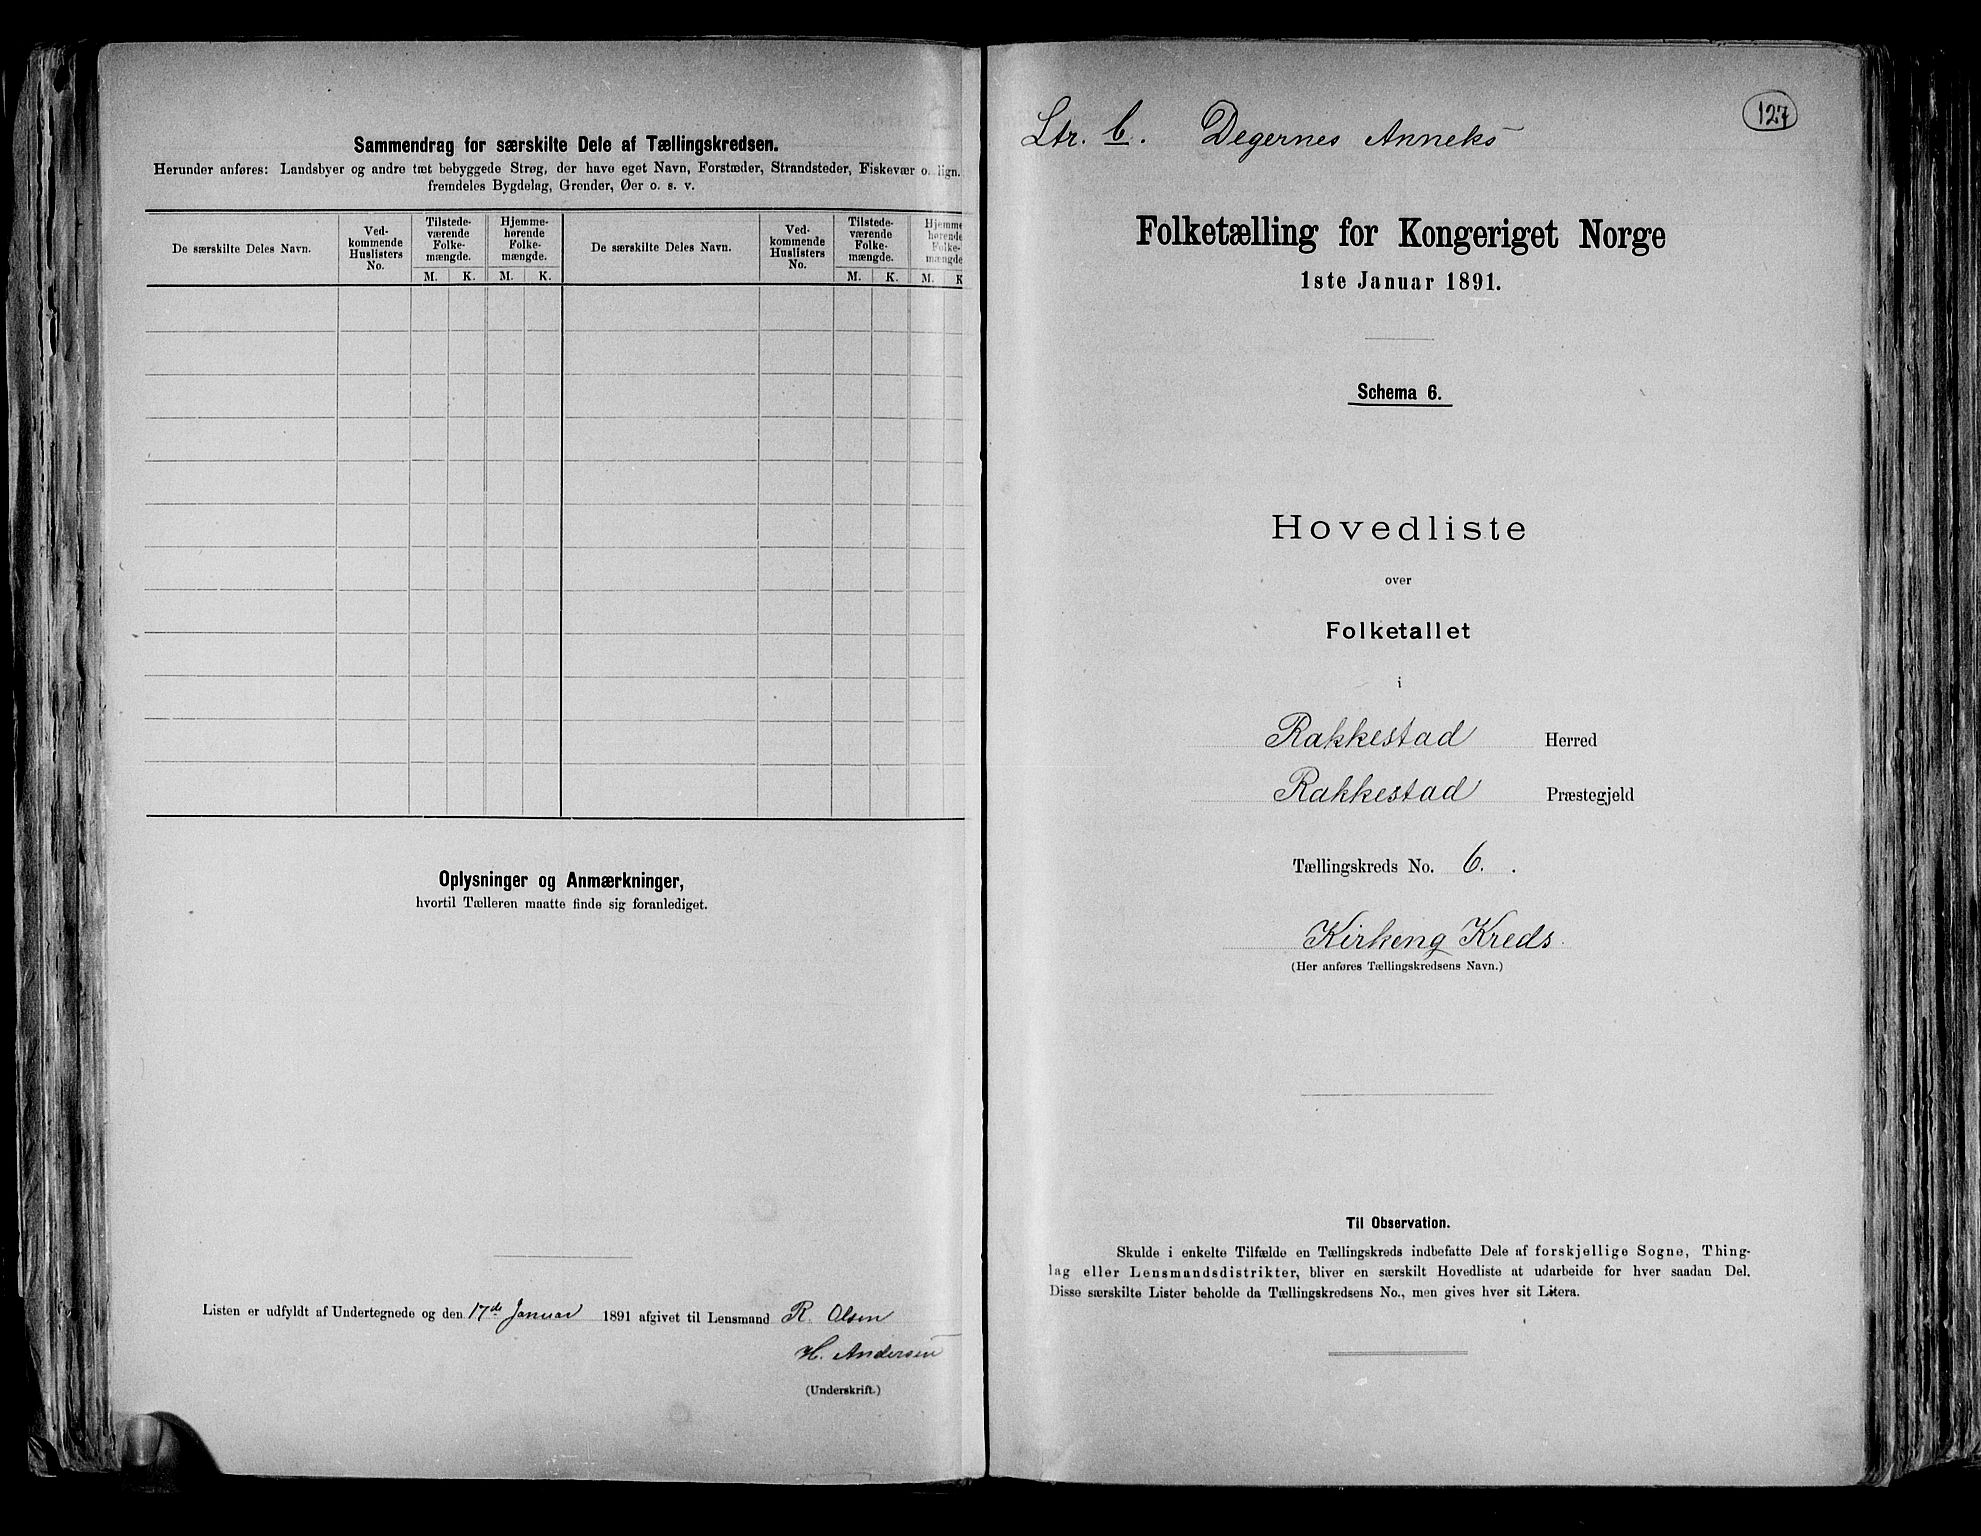 Sammendrag for særskilte Dele af Tællingskredsen.
Herunder anføres: Landsbyer og andre tæt bebyggede Strøg, der have eget Navn, Forstæder, Strandsteder, Fiskevær o. lign.
fremdeles Bygdelag, Grender, Øer o. s. v.
De særskilte Deles Navn.
Ved-
kommende
Huslisters
No.
Tilstede-
værende
Folke-
mængde.
M. K.
Hjemme-
hørende
Folke-
mængde.
M. K.
De særskilte Deles Navn.
Ved-
kommende
Huslisters
No.
Tilstede-
værende
Folke-
mængde.
M. K.
Hjemme
hørende
Folke-
mængde
M. K
Oplysninger og Anmærkninger,
hvortil Tælleren maatte finde sig foranlediget.
Listen er udfyldt af Undertegnede og den 17de Januar 1891 afgivet til Lensmand R. Olsen
H. Andersen
(Underskrift.)
127
Ltr. b. Degernes Anneks
Folketælling for Kongeriget Norge
1ste Januar 1891.
Schema 6.
Hovedliste
over
Folketallet
i
Rakkestad Herred
Rakkestad Præstegjeld
Tællingskreds No. 6.
Kirkeng Kreds.
(Her anføres Tællingskredsens Navn.)
Til Observation.
Skulde i enkelte Tilfælde en Tællingskreds indbefatte Dele af forskjellige Sogne, Thing-
lag eller Lensmandsdistrikter, bliver en særskilt Hovedliste at udarbeide for hver saadan Del.
Disse særskilte Lister beholde da Tællingskredsens No., men gives hver sit Litera.